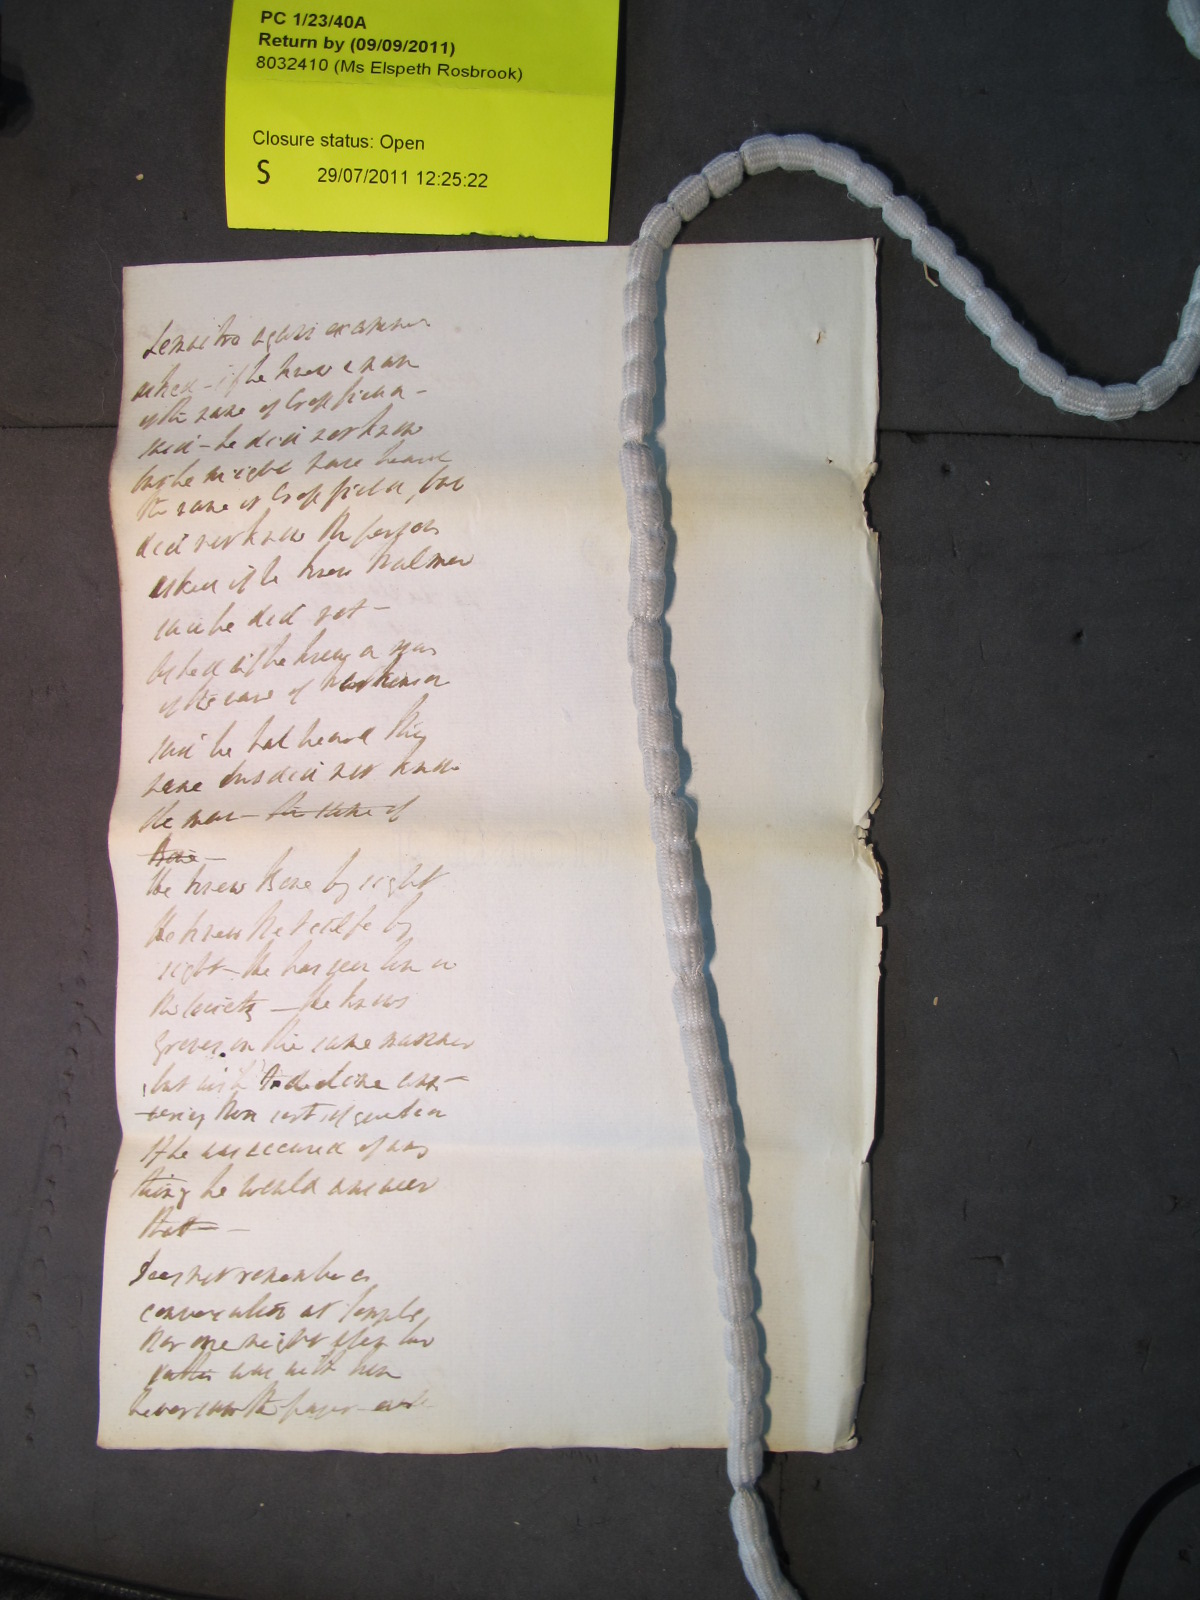 PC 1/23/40A
Return by (09/09/2011)
8032410 (Ms Elspeth Rosbrook)
Closure status: Open
S 29/07/2011 12:25:22
Lemaitre again examined
asked - if he knew a man
of the name of Crossfield -
said - he did not know
but he might have heard
the name of Crossfield, but
did not know the person
asked if he knew Palmer
said he did not -
asked if he knew a man
of the name of
said he had heard the
name but did not know
the man - the name of
He knew by sight
He knew Metcalfe by
sight - He has seen him in
the Society - He knows
Groves in the same manner
but wish'd to decline ans-
-wering this sort of question
If he was accused of any
thing he would answer
that -
Does not remember a
conversation at Temple
Nor one night when his
was with him
Never saw the paper